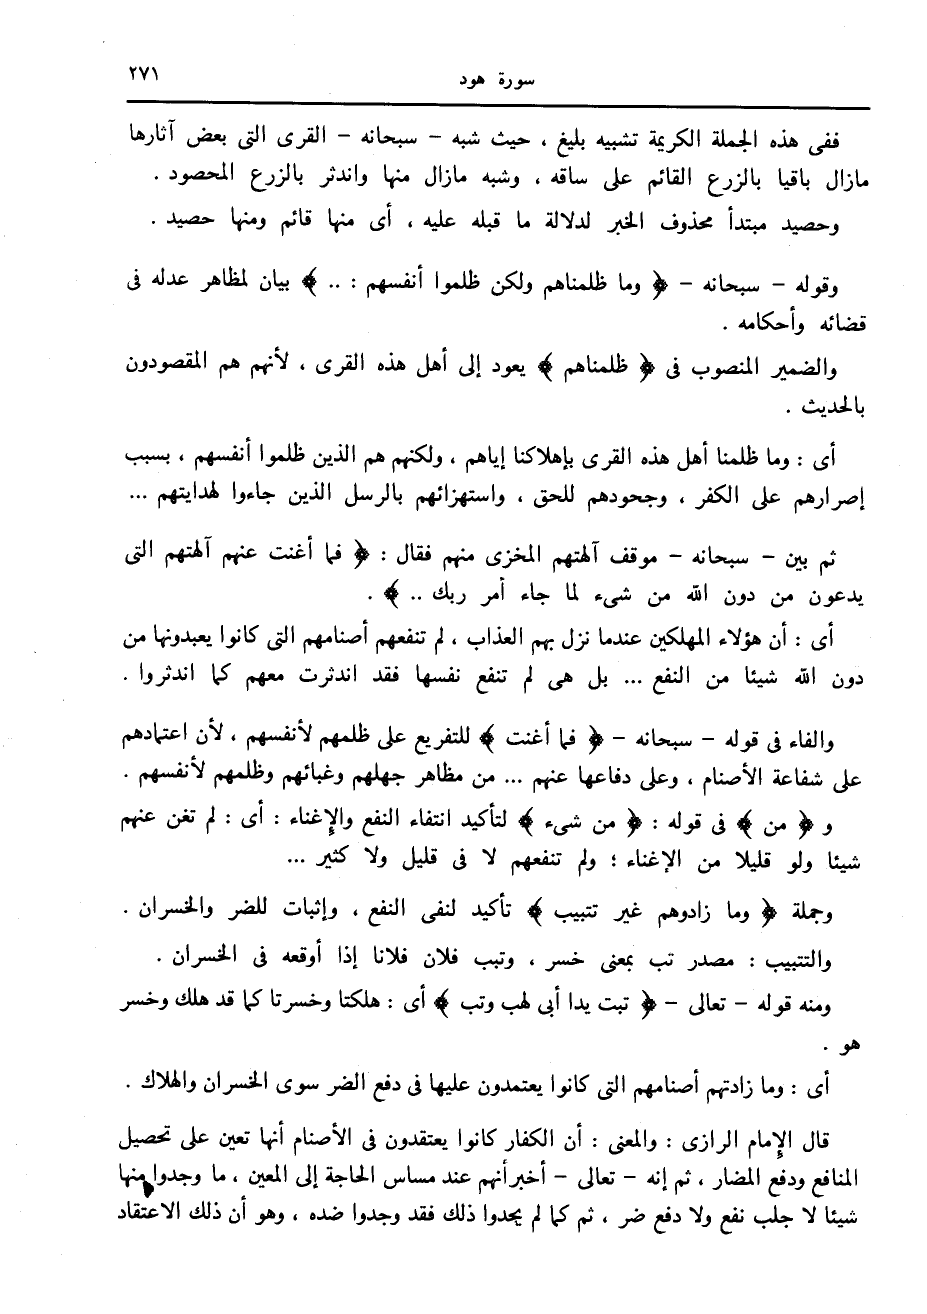 سورة هود
٢٧١
ففى هذه الجملة الكريمة تشبيه بليغ ، حيث شبه – سبحانه – القرى التى بعض آثارها
مازال باقيا بالزرع القائم على ساقه ، وشبه مازال منها واندثر بالزرع المحصود .
وحصيد مبتدأ محذوف الخبر لدلالة ما قبله عليه ، أى منها قائم ومنها حصيد .
وقوله – سبحانه – ﴿ وما ظلمناهم ولكن ظلموا أنفسهم : .. ﴾ بيان لمظاهر عدله فى
قضائه وأحكامه .
والضمير المنصوب فى ﴿ ظلمناهم ﴾ يعود إلى أهل هذه القرى ، لأنهم هم المقصودون
بالحديث .
أى : وما ظلمنا أهل هذه القرى بإهلاكنا إياهم ، ولكنهم هم الذين ظلموا أنفسهم ، بسبب
إصرارهم على الكفر ، وجحودهم للحق ، واستهزائهم بالرسل الذين جاءوا لهدايتهم ...
ثم بين – سبحانه – موقف آلهتهم المخزى منهم فقال : ﴿ فما أغنت عنهم آلهتهم التى
يدعون من دون الله من شىء لما جاء أمر ربك .. ﴾ .
أى : أن هؤلاء المهلكين عندما نزل بهم العذاب ، لم تنفعهم أصنامهم التى كانوا يعبدونها من
دون الله شيئا من النفع ... بل هى لم تنفع نفسها فقد اندثرت معهم كما اندثروا .
والفاء فى قوله – سبحانه – ﴿ فما أغنت ﴾ للتفريع على ظلمهم لأنفسهم ، لأن اعتمادهم
على شفاعة الأصنام ، وعلى دفاعها عنهم ... من مظاهر جهلهم وغبائهم وظلمهم لأنفسهم .
و ﴿ من ﴾ فى قوله : ﴿ من شىء ﴾ لتأكيد انتفاء النفع والإغناء : أى : لم تغن عنهم
شيئا ولو قليلا من الإغناء ؛ ولم تنفعهم لا فى قليل ولا كثير ...
وجملة ﴿ وما زادوهم غير تتبيب ﴾ تأكيد لنفى النفع ، وإثبات للضر والخسران .
والتتبيب : مصدر تب بمعنى خسر ، وتبب فلان فلانا إذا أوقعه فى الخسران .
ومنه قوله – تعالى – ﴿ تبت يدا أبى لهب وتب ﴾ أى : هلكتا وخسرتا كما قد هلك وخسر
هو .
أى : وما زادتهم أصنامهم التى كانوا يعتمدون عليها فى دفع الضر سوى الخسران والهلاك .
قال الإمام الرازى : والمعنى : أن الكفار كانوا يعتقدون فى الأصنام أنها تعين على تحصيل
المنافع ودفع المضار ، ثم إنه – تعالى – أخبر أنهم عند مساس الحاجة إلى المعين ، ما وجدوا منها
شيئا لا جلب نفع ولا دفع ضر ، ثم كما لم يجدوا ذلك فقد وجدوا ضده ، وهو أن ذلك الاعتقاد